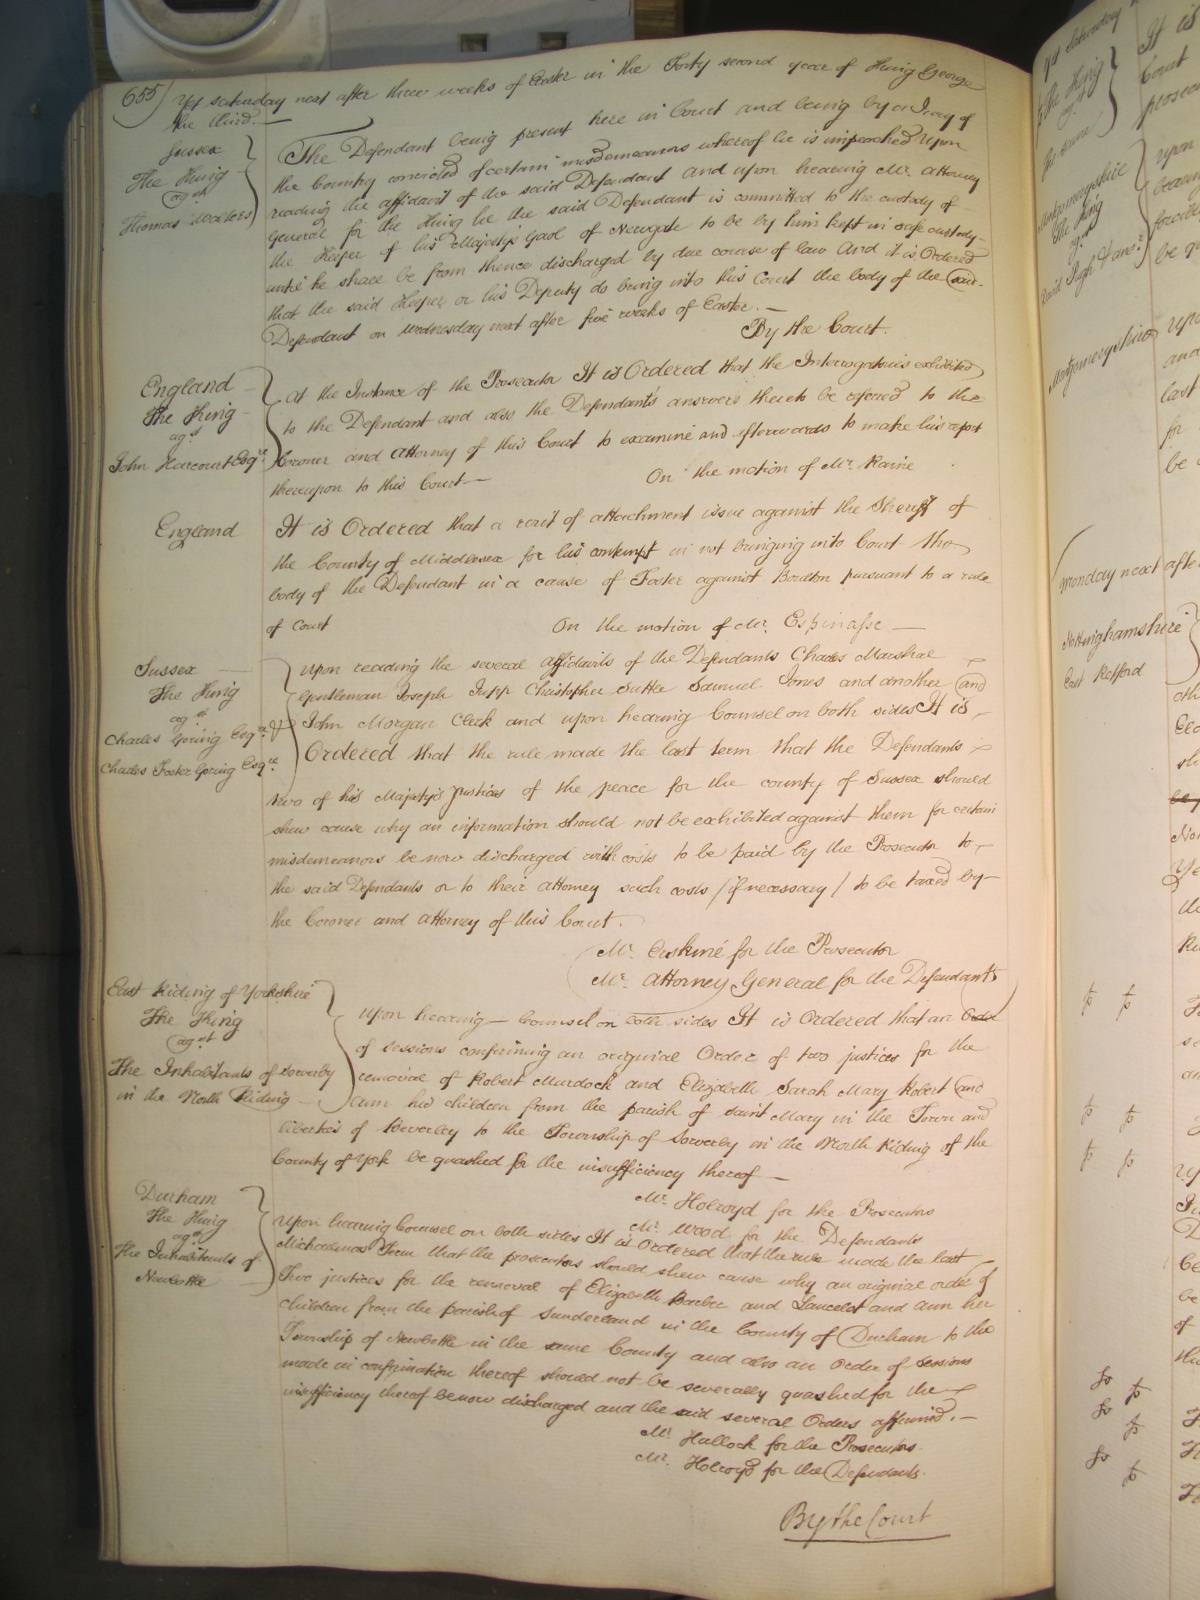 655) Yet saturday next after three weeks of Easter in the Forty second year of King George
the third.
Sussex
The King
agst
Thomas Walters
The Defendant being present here in Court and being by a Jury of
the Country convicted of certain misdemeanors whereof he is impeached Upon
reading the affidavit of the said Defendant and upon hearing Mr. Attorney
General for the King he the said Defendant is committed to the custody of
the Keeper of his Majesty's Gaol of Newgate to be by him kept in safe custody
until he shall be from thence discharged by due course of law And it is Ordered
that the said Keeper or his Deputy do bring into this Court the body of the said
Defendant on Wednesday next after five weeks of Easter. —
By the Court.
England
The King
agst
John Harcourt Esqr.
At the Instance of the Prosecutor It is Ordered that the Interrogatories exhibited
to the Defendant and also the Defendants answers thereto be referred to the
Coroner and Attorney of this Court to examine and afterwards to make his report
thereupon to this Court —
On the motion of Mr. Raine
England
It is Ordered that a writ of attachment issue against the Sheriff of
the County of Middlesex for his contempt in not bringing into Court the
body of the Defendant in a cause of Foster against Boulton pursuant to a rule
of Court
On the motion of Mr. Espinasse —
Sussex
The King
agst
Charles Goring Esqre. &
Charles Foster Goring Esqre.
Upon reading the several affidavits of the Defendants Charles Marshal
Gentleman Joseph Jupp Christopher Suttle Samuel Jones and another and
John Morgan Clerk and upon hearing Counsel on both sides It is
Ordered that the rule made the last term that the Defendants
two of his Majesty's justices of the peace for the county of Sussex should
shew cause why an information should not be exhibited against them for certain
misdemeanors be now discharged with costs to be paid by the Prosecutor to
the said Defendants or to their attorney such costs /if necessary/ to be taxed by
the Coroner and Attorney of this Court.
Mr. Erskine for the Prosecutor
Mr. Attorney General for the Defendants
East Riding of Yorkshire
The King
agst
The Inhabitants of Sowerby
in the North Riding
Upon hearing Counsel on both sides It is Ordered that an Order
of sessions confirming an original Order of two justices for the
removal of Robert Murdock and Elizabeth Sarah Mary Robert and
Ann his children from the parish of saint Mary in the Town and
liberties of Beverley to the Township of Sowerby in the North Riding of the
County of York be quashed for the insufficiency thereof —
Mr. Holroyd for the Prosecutors
Mr. Wood for the Defendants
Durham
The King
agst
The Inhabitants of
Newbottle
Upon hearing Counsel on both sides It is Ordered that the rule made the last
Michaelmas Term that the prosecutors should shew cause why an original order of
Two justices for the removal of Elizabeth Barber and Lancelot and Ann her
children from the parish of Sunderland in the County of Durham to the
Township of Newbottle in the same County and also an Order of Sessions
made in confirmation thereof should not be severally quashed for the
insufficiency thereof be now discharged and the said several Orders affirmed. —
Mr. Hullock for the Prosecutors
Mr. Holroyd for the Defendants.
By the Court
Yet Saturday
The King
agst
Montgomeryshire
The King
agst
Montgomeryshire
Monday next after
Nottinghamshire
East Retford